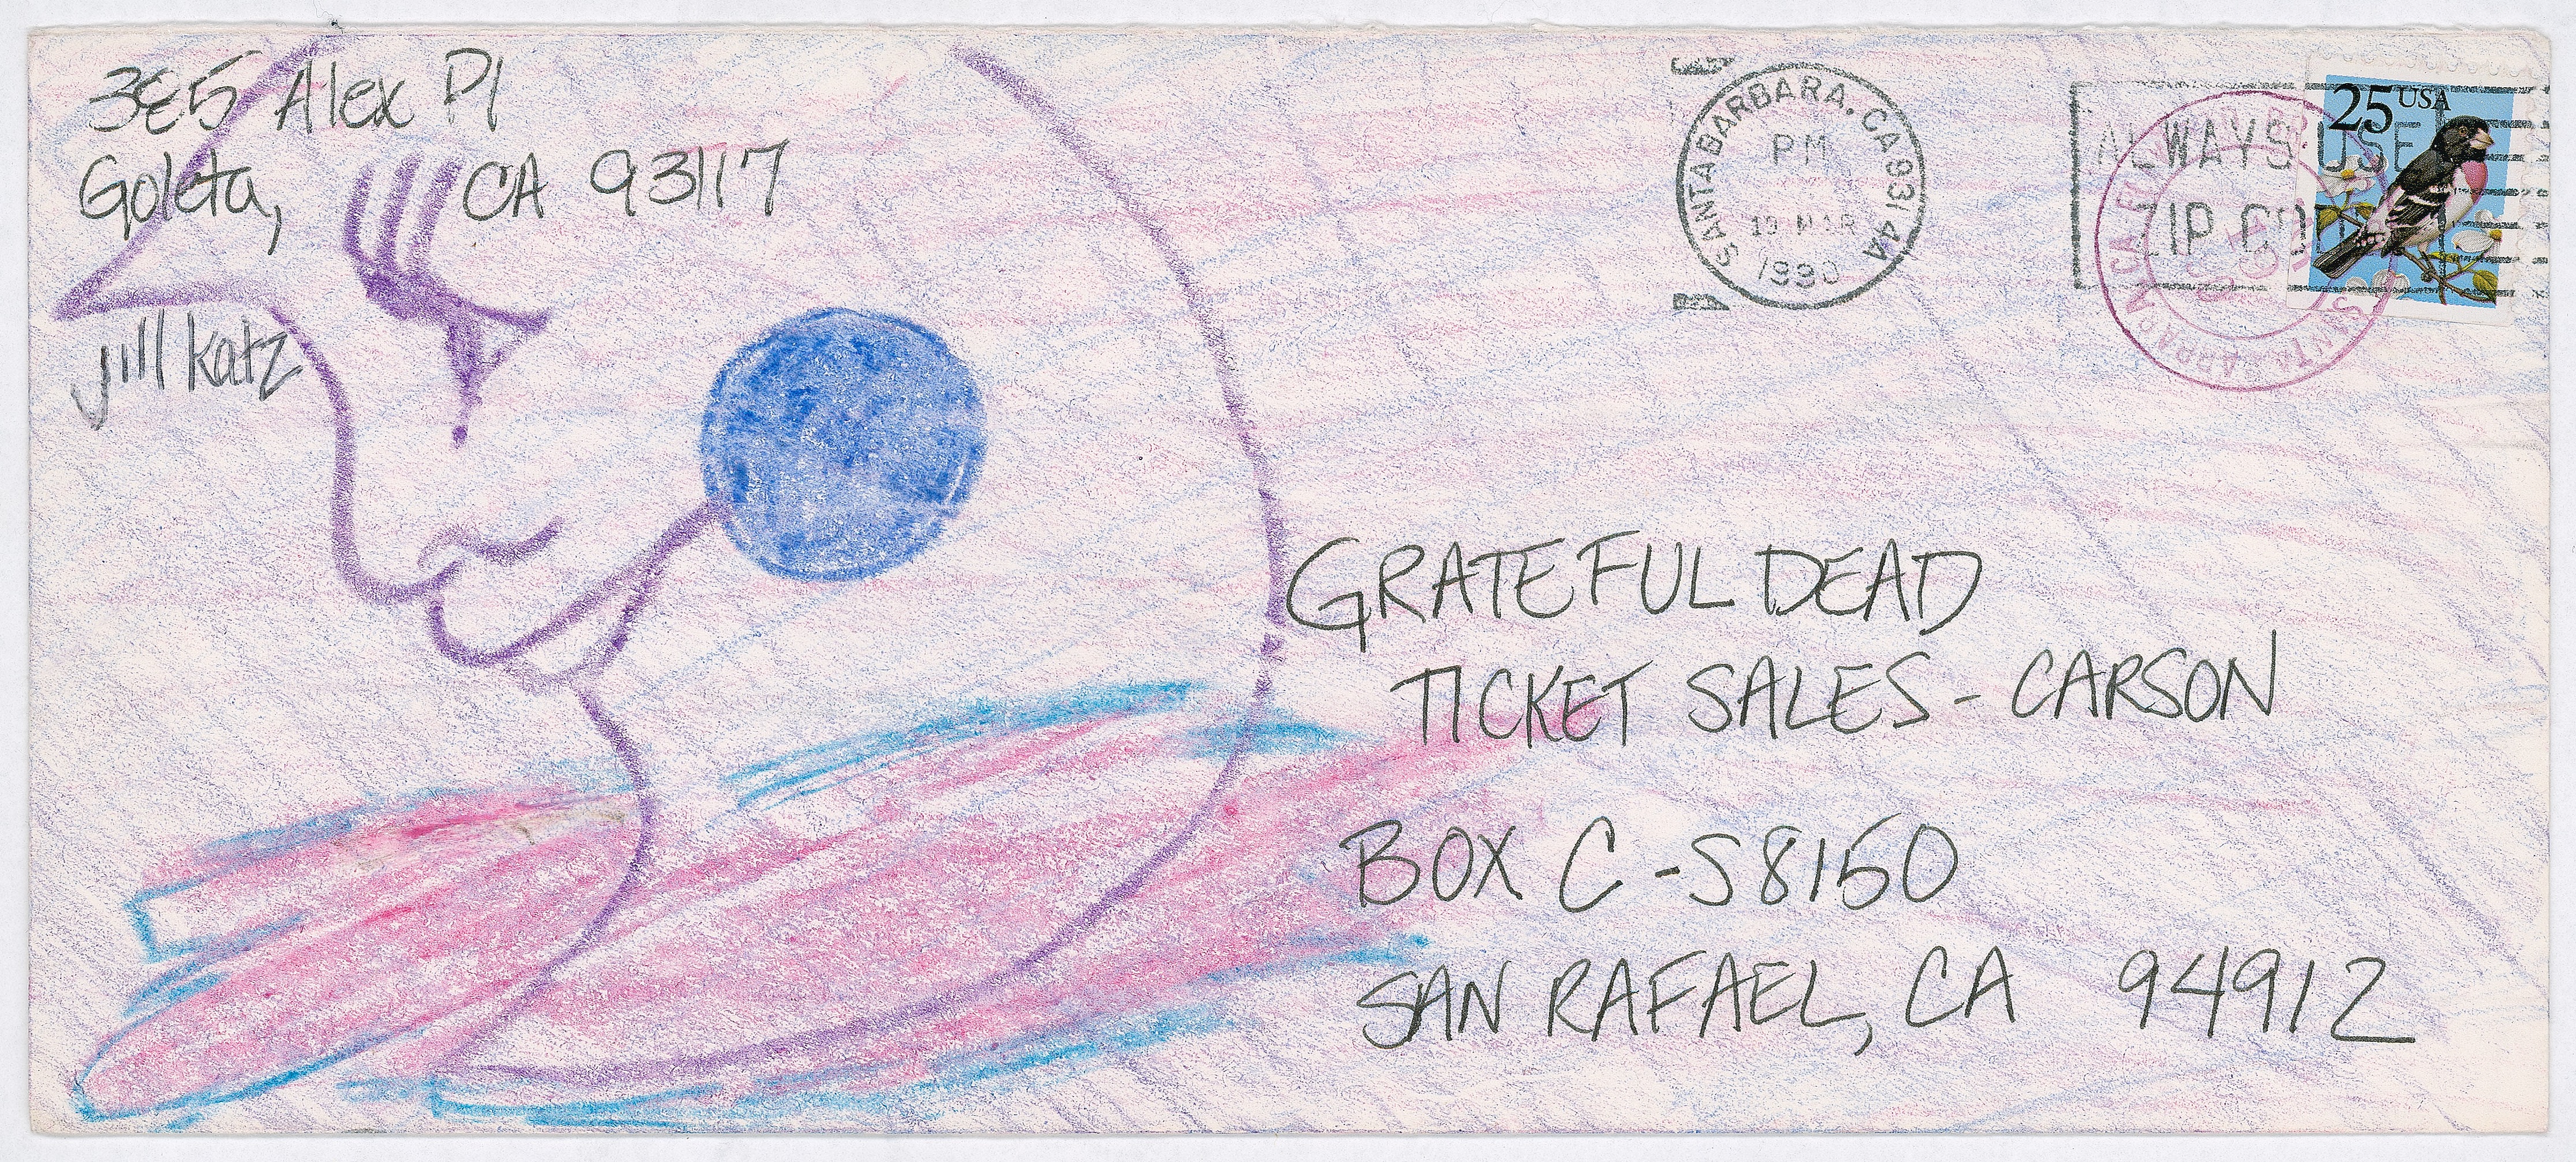 385 Alex Pl
Goleta, CA 93117
Jill Katz
SANTA BARBARA, CA 931 4A
PM
19 MAR
1990
ALWAYS USE
ZIP CODE
25 USA
SANTA BARBARA CALIF
GRATEFUL DEAD
TICKET SALES - CARSON
BOX C-S8150
SAN RAFAEL, CA 94912